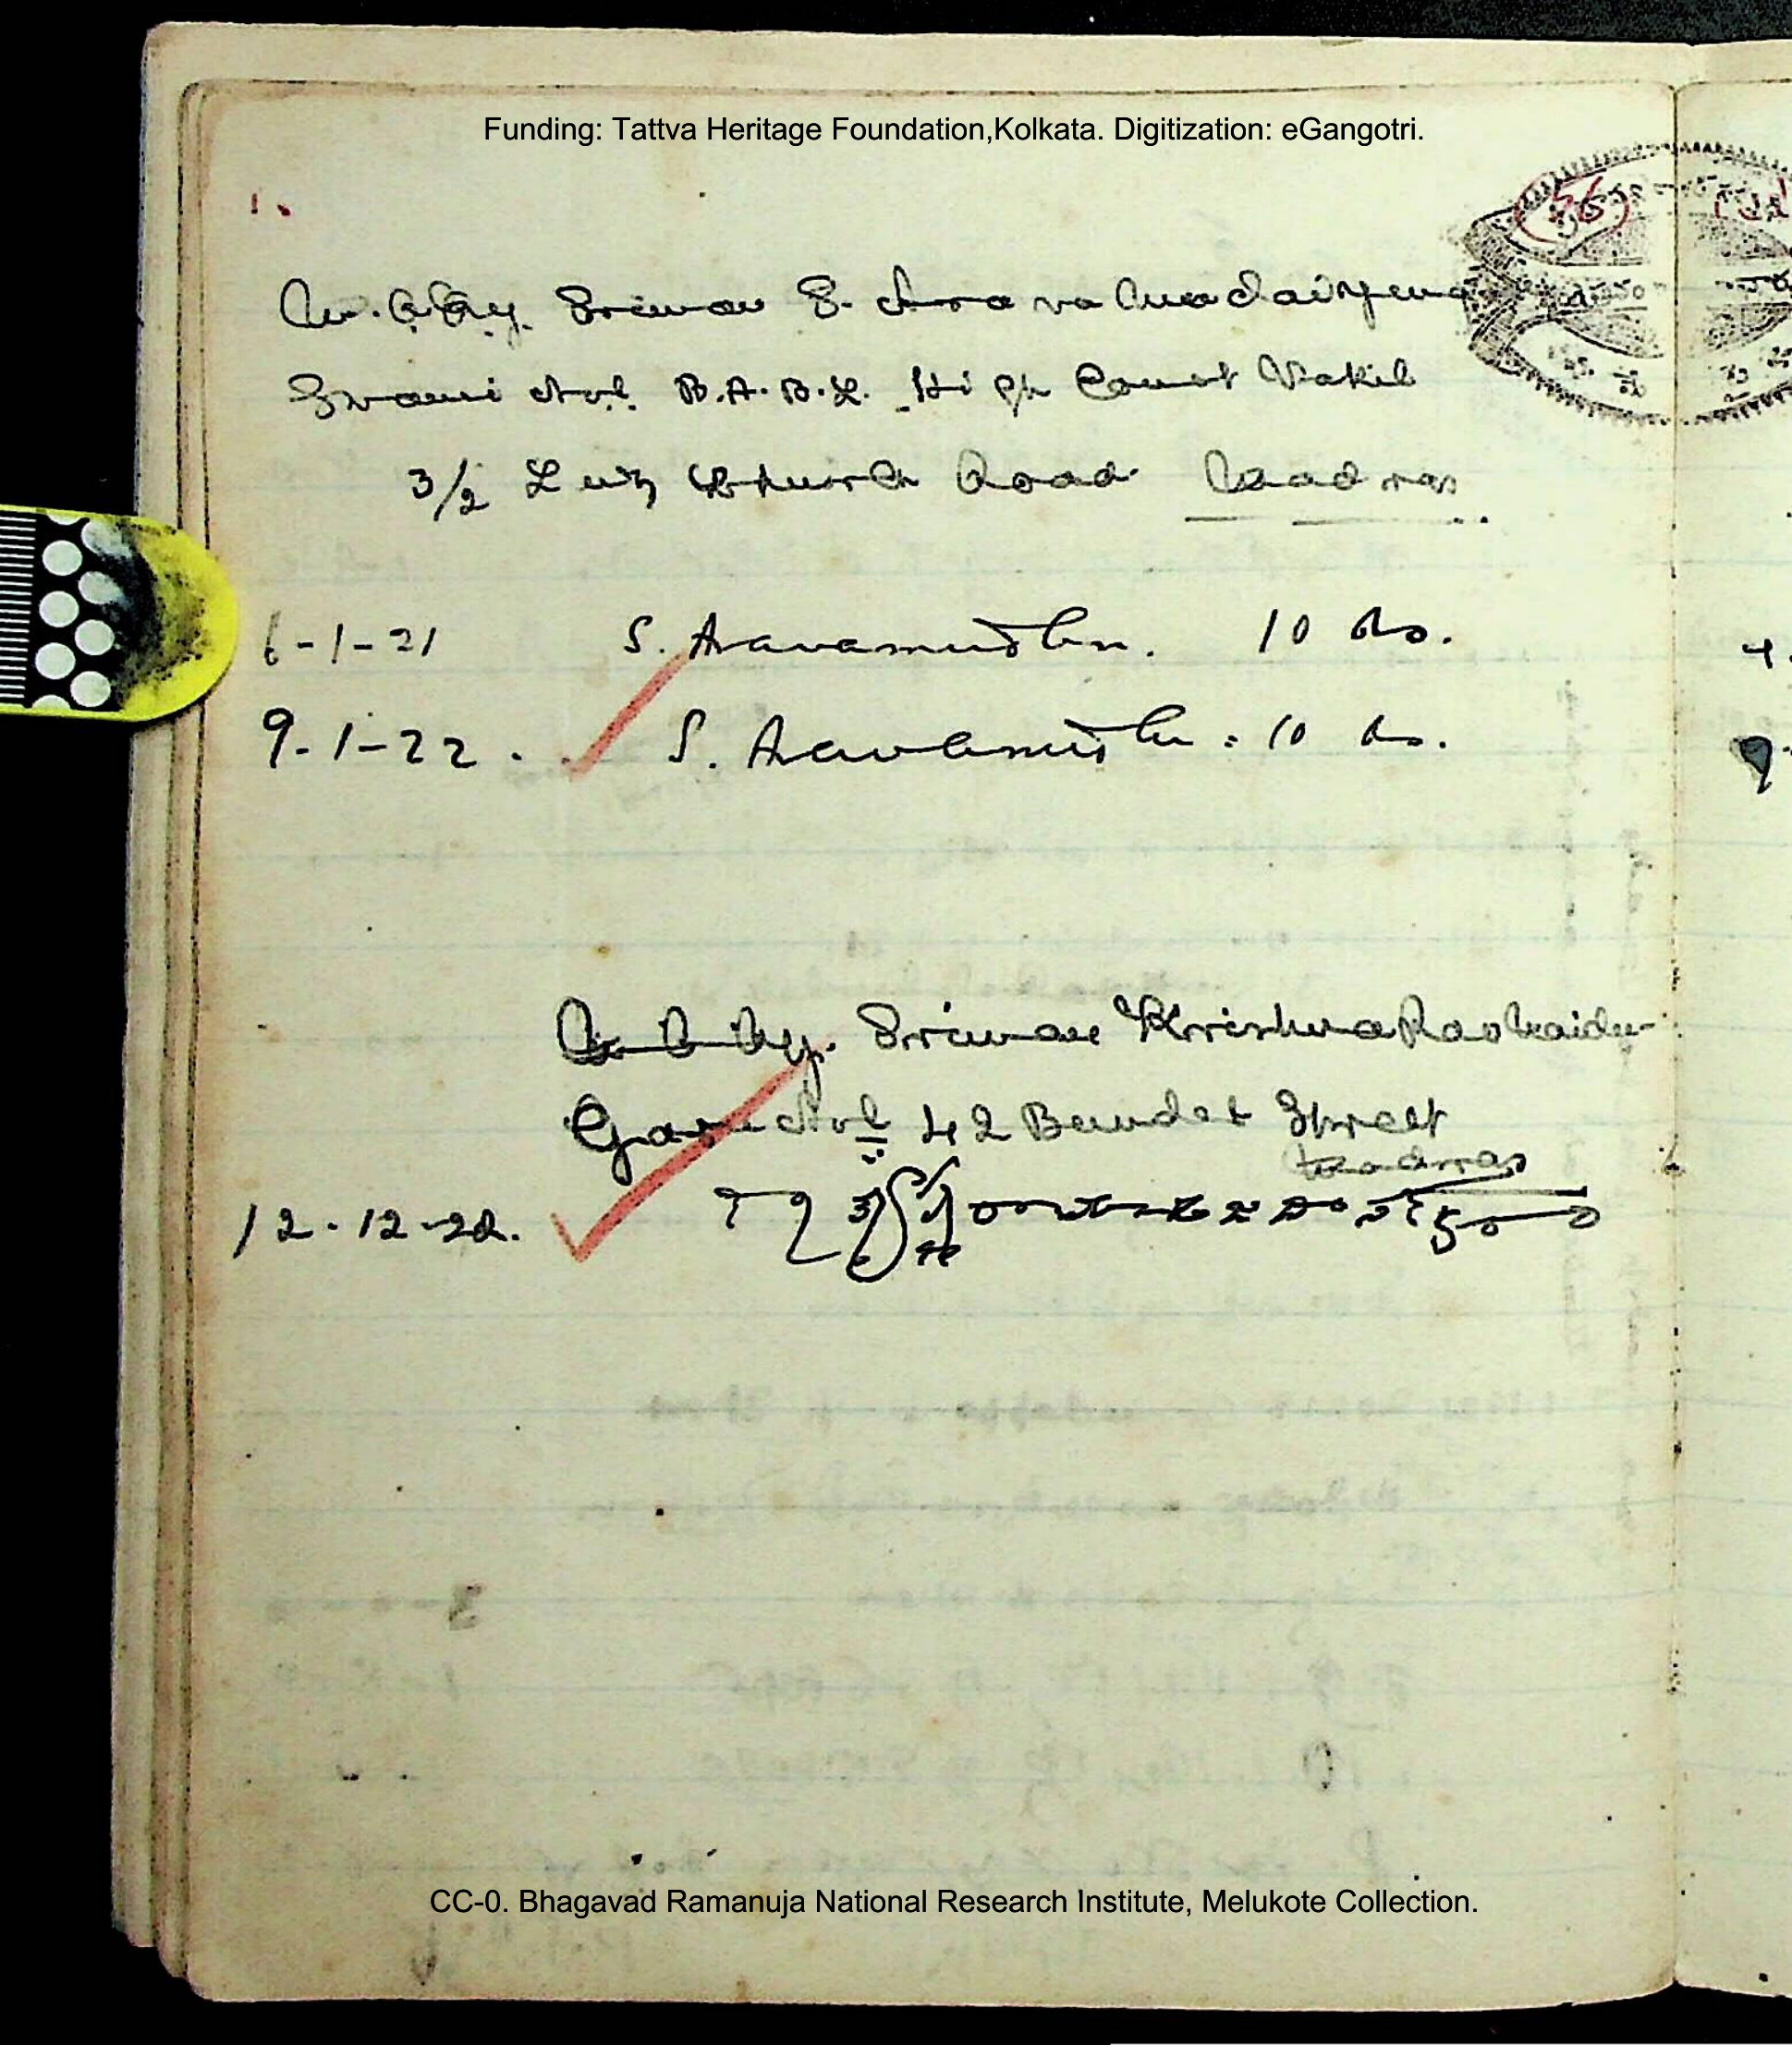 Funding: Tattva Heritage Foundation,Kolkata. Digitization: eGangotri.
56
M.R.Ry. Sriman S. Aravamudaiyengar
Swami Avl. B.A.B.L. High Court Vakil
3/2 Luz Church Road Madras
6-1-21 S. Aravamudhan. 10 Rs.
9-1-22. S. Aravamudhan 10 Rs.
M.R.Ry. Sriman Krishna Rao Naidu
Garu Avl 42 Baudet Street
Madras
12-12-22.
CC-0. Bhagavad Ramanuja National Research Institute, Melukote Collection.